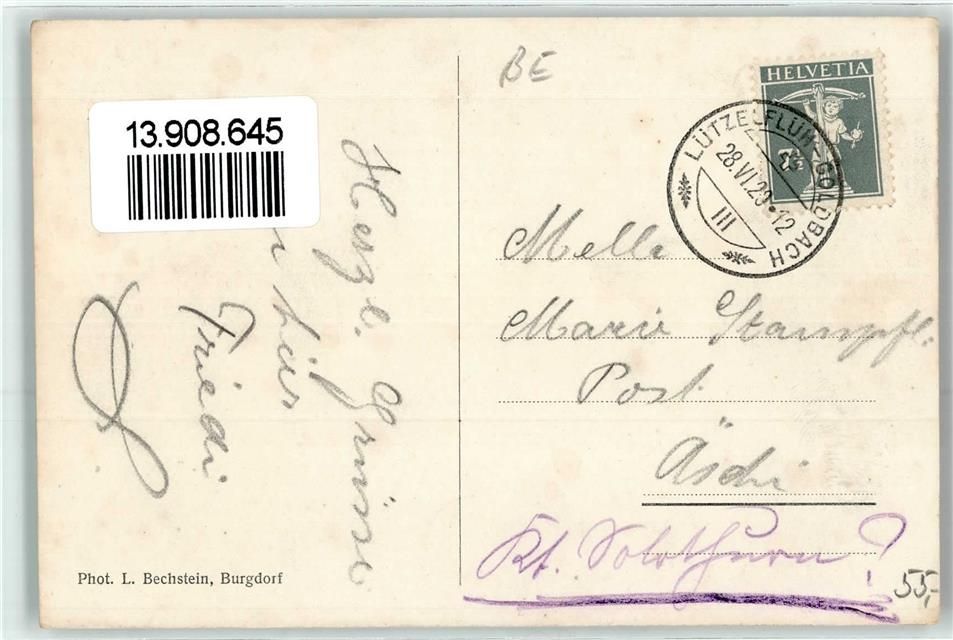 BE
HELVETIA
7½
LÜTZELFLÜH-GOLDBACH
28.VI.29.12
III
13.908.645
Herzl. Grüsse
Friedi
Melle
Marie Stampfli
Post
Äschi
Kt. Solothurn?
55,-
Phot. L. Bechstein, Burgdorf